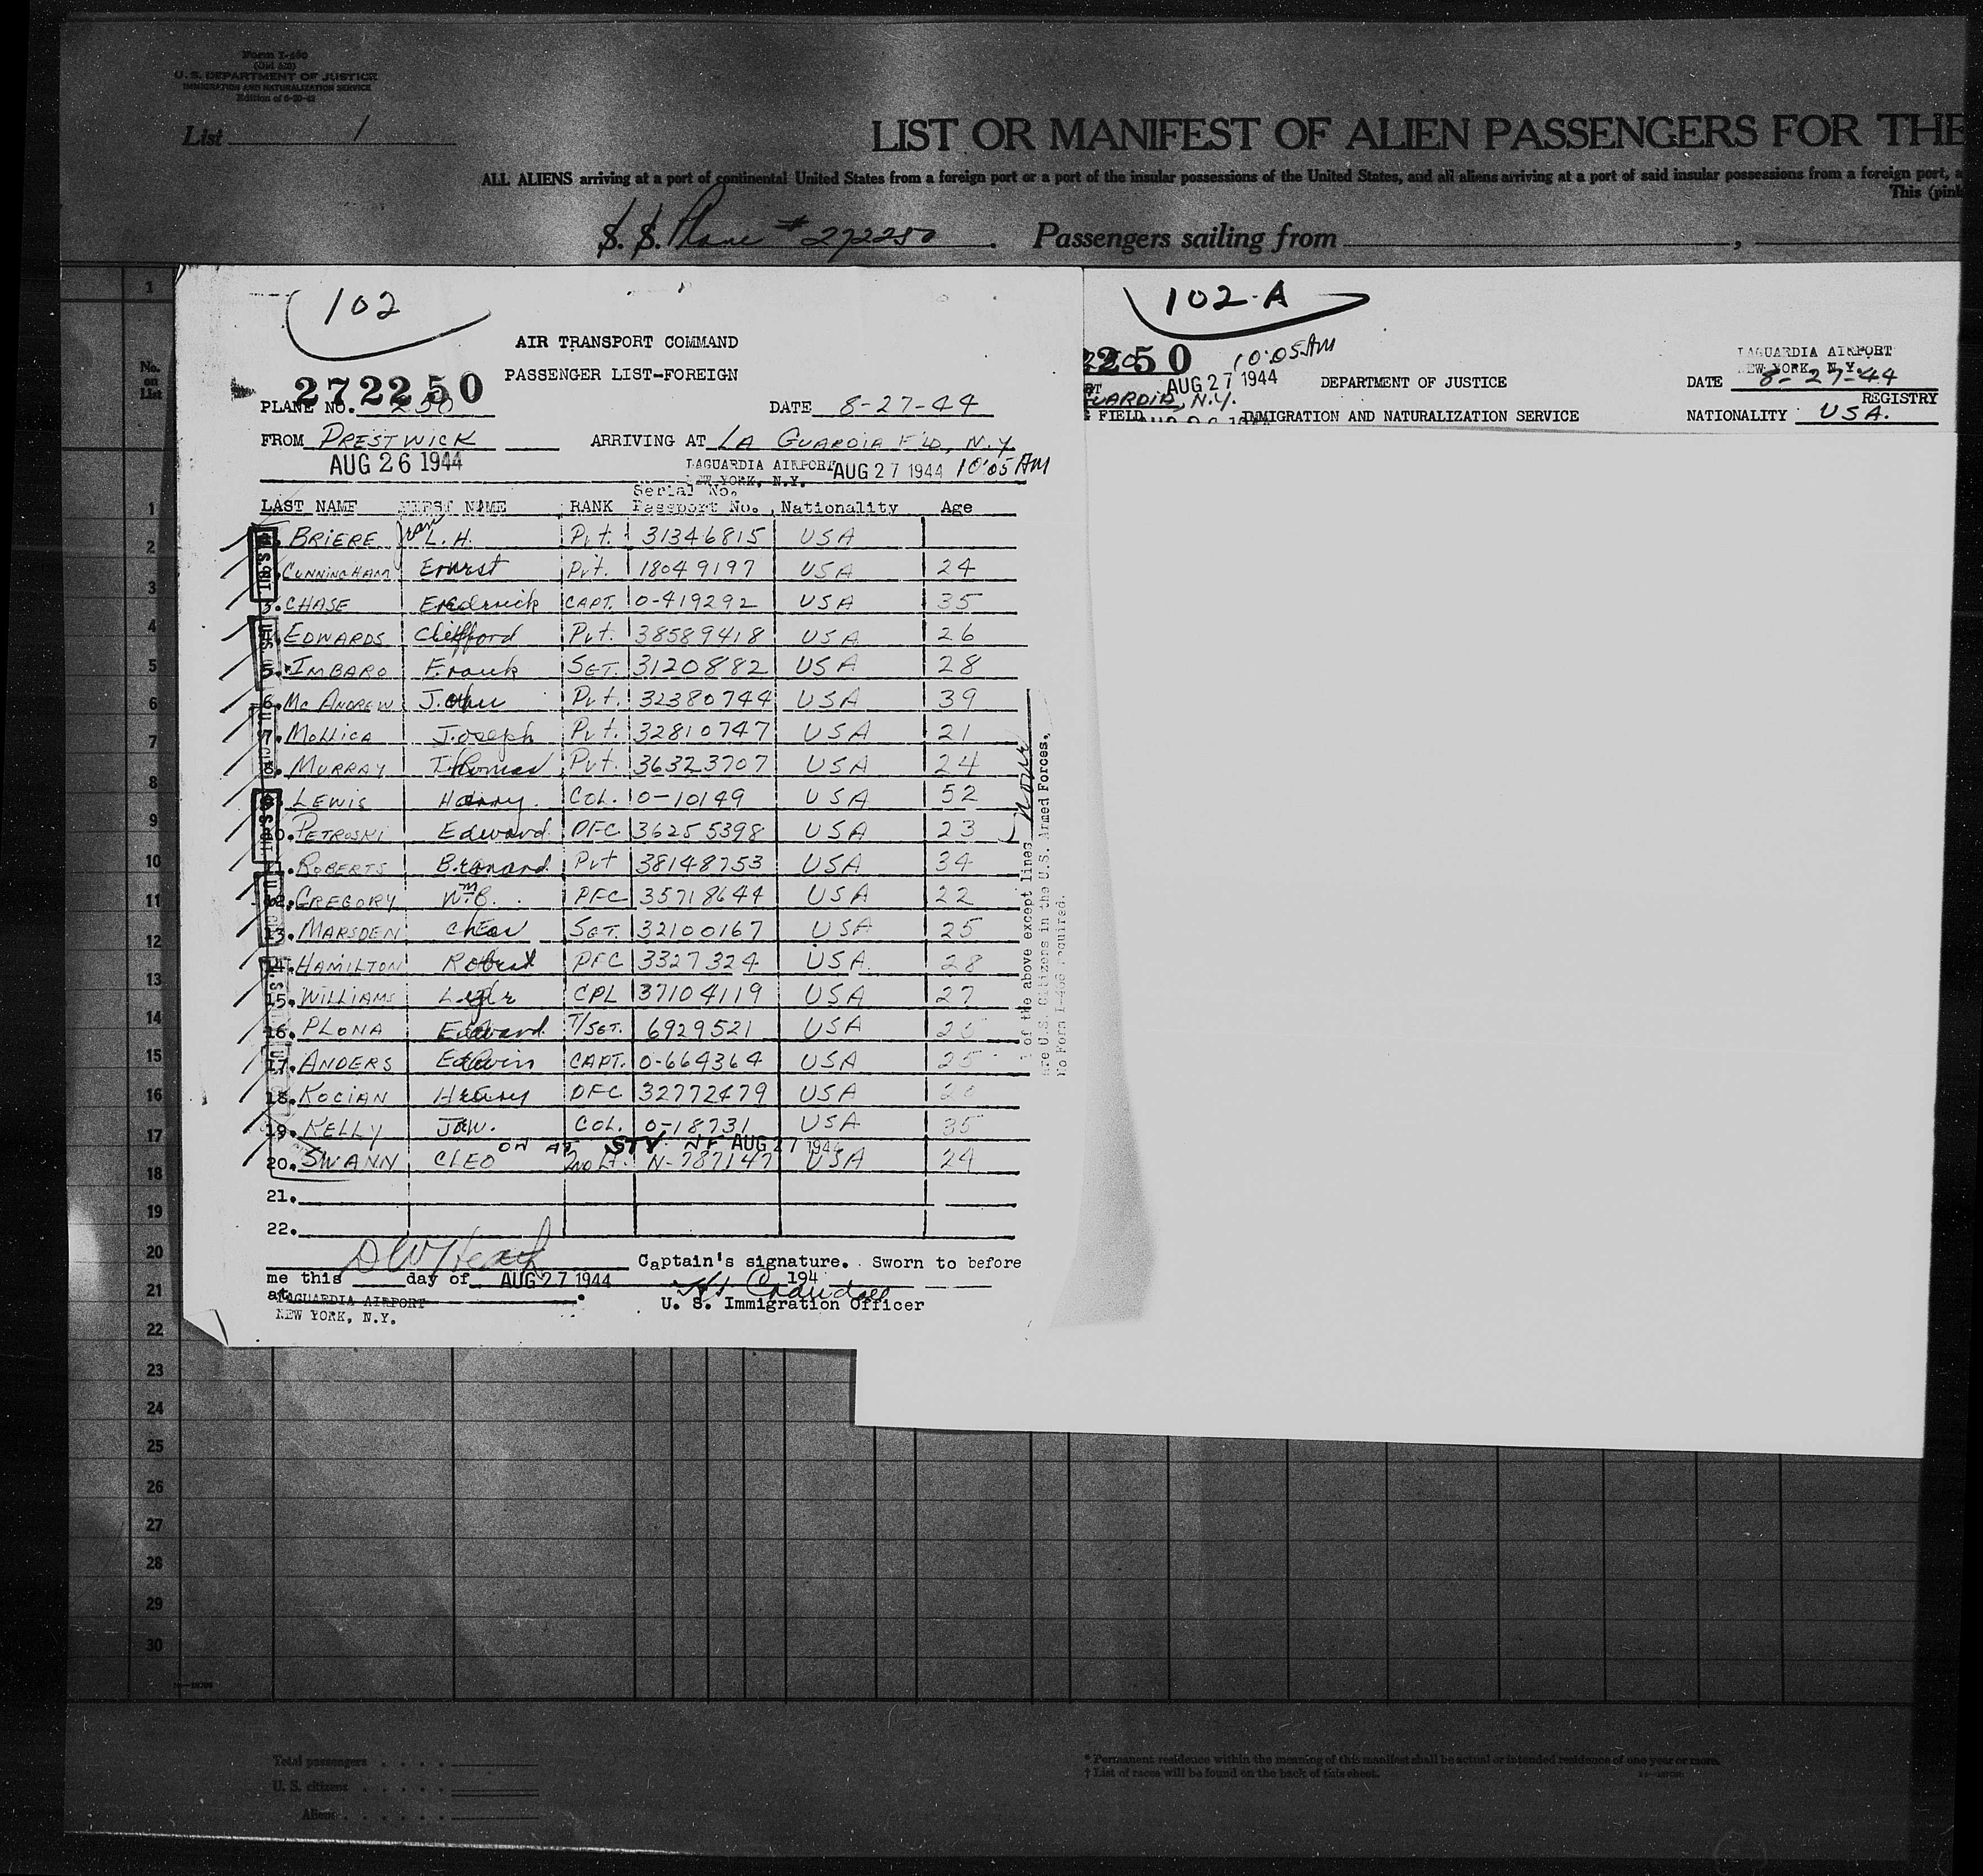 Form I-460
(Old 620)
U. S. DEPARTMENT OF JUSTICE
IMMIGRATION AND NATURALIZATION SERVICE
List 1
LIST OR MANIFEST OF ALIEN PASSENGERS FOR THE
ALL ALIENS arriving at a port of continental United States from a foreign port or a part of the insular possessions of the United States, and all aliens arriving at a port of said insular possessions from a foreign port, a
This (pink
S. S. Plane # 272250 . Passengers sailing from ,
No. on List
102
AIR TRANSPORT COMMAND
PASSENGER LIST-FOREIGN
272250
PLANE NO. 250 DATE 8-27-44
FROM PRESTWICK ARRIVING AT LA GUARDIA F'LD, N.Y.
AUG 26 1944 LAGUARDIA AIRPORT NEW YORK, N.Y. AUG 27 1944 10:05 AM
LAST NAME FIRST NAME RANK Serial No. Passport No. Nationality Age
BRIERE Jean L.H. Pvt. 31346815 USA
CUNNINGHAM Ernest Pvt. 18049197 USA 24
3. CHASE Frederick CAPT. 0-419292 USA 35
EDWARDS Clifford Pvt. 38589418 USA 26
5. IMBARO Frank SGT. 3120882 USA 28
6. Mc ANDREW John Pvt. 32380744 USA 39
7. MOLLICA Joseph Pvt. 32810747 USA 21
8. MURRAY Thomas Pvt. 36323707 USA 24
LEWIS Harry COL. 0-10149 USA 52
10. PETROSKI Edward PFC 36255398 USA 23
11. ROBERTS Bernard Pvt 38148753 USA 34
12. GREGORY Wm. C. PFC 35718644 USA 22
13. MARSDEN Chas SGT. 32100167 USA 25
14. HAMILTON Robert PFC 3327324 USA. 28
15. WILLIAMS CPL 37104119 USA 27
16. PLONA Edward T/SGT. 6929521 USA
17. ANDERS Edwin CAPT. 0-664364 USA 25
18. KOCIAN Henry PFC 32772479 USA
19. KELLY J.W. COL. 0-18731 USA 35
AUG 27 1944
20. SWANN CLEO 2ND LT. N-787147 USA 24
21.
22.
of the above except lines None
are U.S. Citizens in the U.S. Armed Forces.
No Form I-466 required.
Captain's signature. Sworn to before
me this day of AUG 27 1944 194
at LAGUARDIA AIRPORT
NEW YORK, N.Y.
U. S. Immigration Officer
102-A
2250 10:05 AM
AUG 27 1944
GUARDIA, N.Y.
FIELD
DEPARTMENT OF JUSTICE
IMMIGRATION AND NATURALIZATION SERVICE
LAGUARDIA AIRPORT
NEW YORK, N.Y.
DATE 8-27-44
REGISTRY
NATIONALITY USA.
1
2
3
4
5
6
7
8
9
10
11
12
13
14
15
16
17
18
19
20
21
22
23
24
25
26
27
28
29
30
Total passengers
U. S. citizens
Aliens
* Permanent residence within the meaning of this manifest shall be actual or intended residence of one year or more.
† List of races will be found on the back of this sheet.